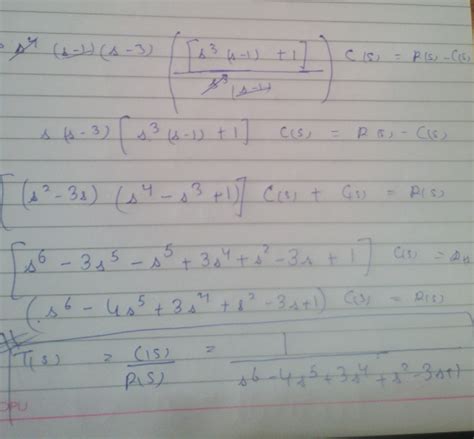 s⁴ (s-1) (s-3) ( [s³ (s-1) + 1] / s³ (s-1) ) C(s) = R(s) - C(s)
s (s-3) [ s³ (s-1) + 1 ] C(s) = R(s) - C(s)
[ (s² - 3s) (s⁴ - s³ + 1) ] C(s) + C(s) = R(s)
[ s⁶ - 3s⁵ - s⁵ + 3s⁴ + s² - 3s + 1 ] C(s) =
(s⁶ - 4s⁵ + 3s⁴ + s² - 3s + 1) C(s) = R(s)
T(s) = C(s) / R(s) = 1 / s⁶ - 4s⁵ + 3s⁴ + s² - 3s + 1